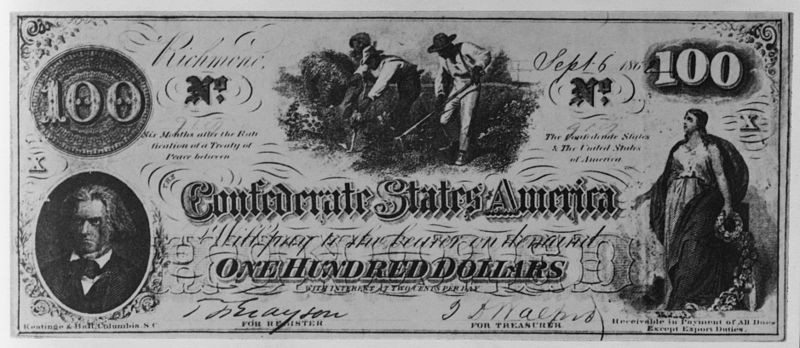 Richmond,
Sept. 6 186
100
No.
No.
100
Six Months after the Rati-
fication of a Treaty of
Peace between
The Confederate States
& The United States
of America
X
X
THE
Confederate States of America
Will pay to the bearer on demand
HUNDRED
ONE HUNDRED DOLLARS
WITH INTEREST AT TWO CENTS PER DAY
FOR REGISTER
FOR TREASURER
Keatinge & Ball, Columbia, S.C.
Receivable in Payment of All Dues
Except Export Duties.